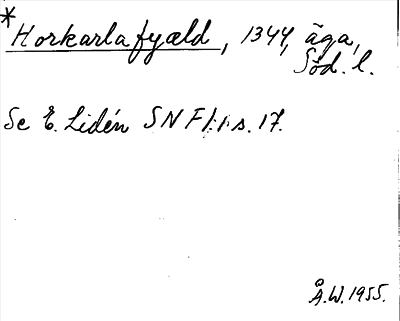 * Horkarlafyæld, 1344, äga,
Söd. l.
Se E. Lidén SNF 1:1 s. 17.
Å.W. 1955.